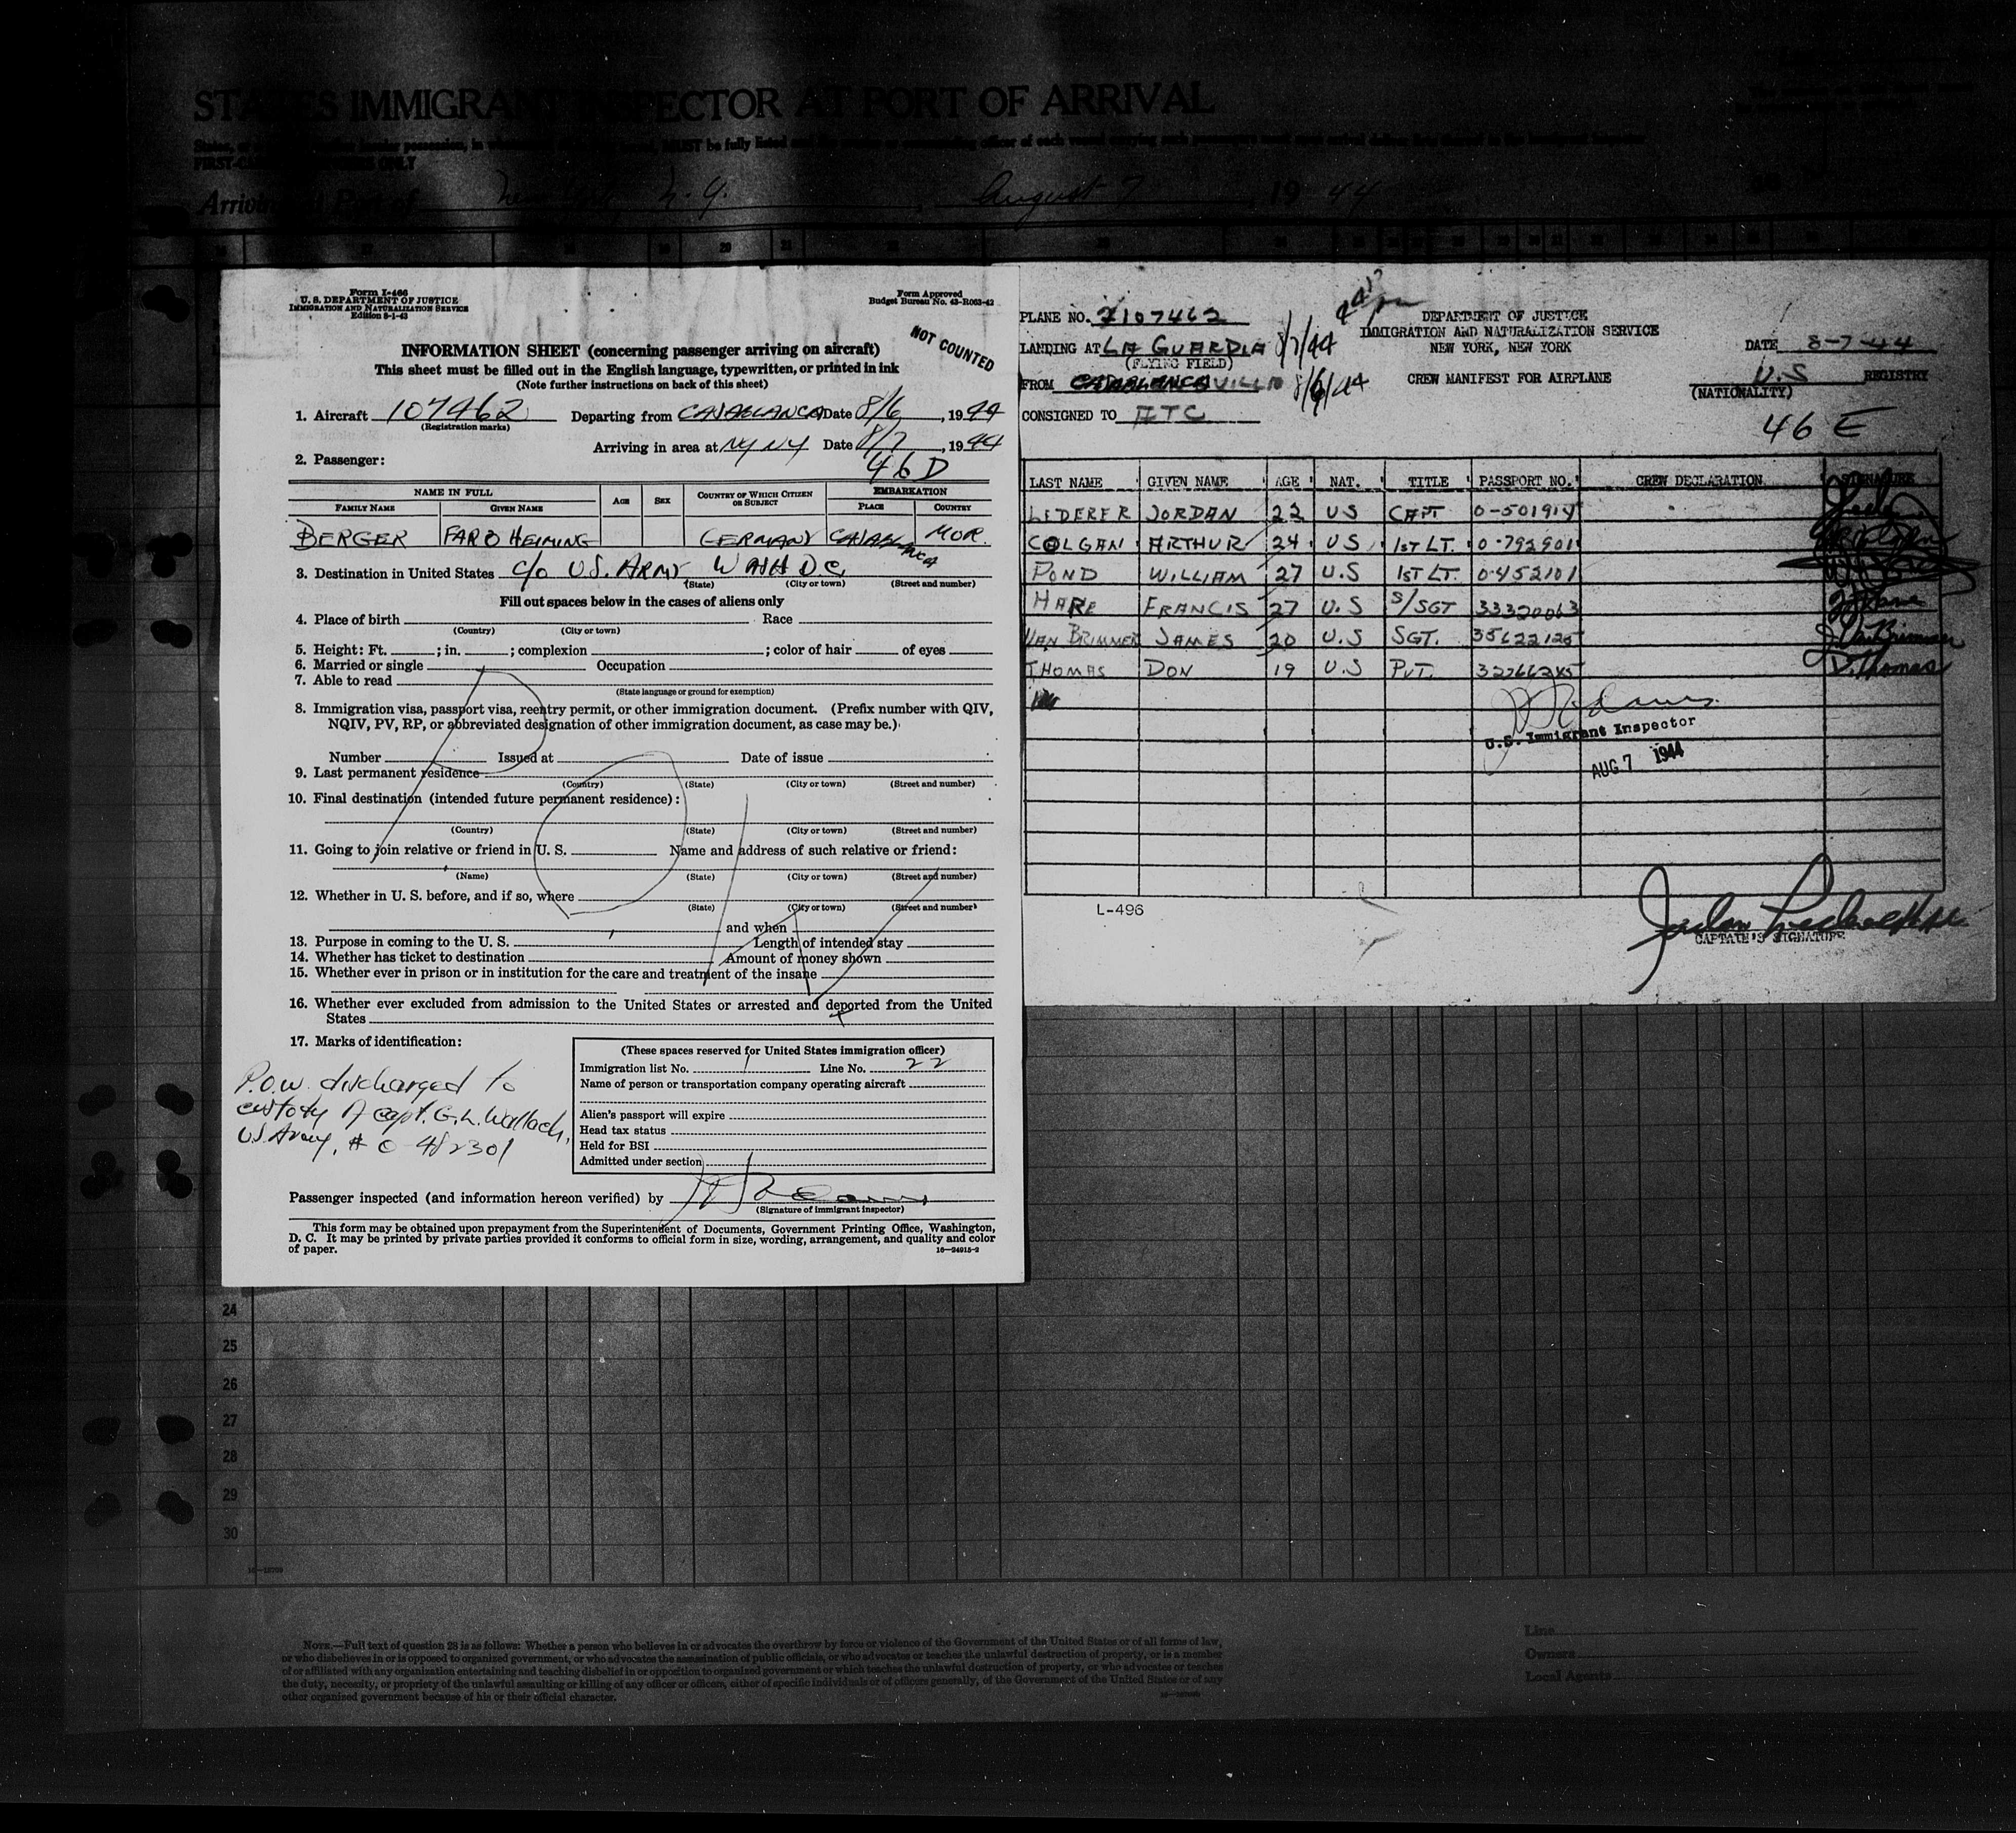 STATES IMMIGRANT INSPECTOR AT PORT OF ARRIVAL
FIRST-CABIN PASSENGERS ONLY
Arriving at Port of New York, N.Y. August 7, 1944
Form I-466
U. S. DEPARTMENT OF JUSTICE
IMMIGRATION AND NATURALIZATION SERVICE
Edition 8-1-43
Form Approved
Budget Bureau No. 43-R063-42
NOT COUNTED
INFORMATION SHEET (concerning passenger arriving on aircraft)
This sheet must be filled out in the English language, typewritten, or printed in ink
(Note further instructions on back of this sheet)
1. Aircraft 107462 Departing from CASABLANCA Date 8/6, 1944
(Registration marks)
Arriving in area at NY NY Date 8/7, 1944
2. Passenger: 46 D
NAME IN FULL AGE SEX COUNTRY OF WHICH CITIZEN OR SUBJECT EMBARKATION
FAMILY NAME GIVEN NAME PLACE COUNTRY
BERGER FARO HEIMING GERMANY CASABLANCA MOR.
3. Destination in United States C/O U.S. ARMY WASH D.C.
(State) (City or town) (Street and number)
Fill out spaces below in the cases of aliens only
4. Place of birth Race
(Country) (City or town)
5. Height: Ft. ; in. ; complexion ; color of hair of eyes
6. Married or single Occupation
7. Able to read
(State language or ground for exemption)
8. Immigration visa, passport visa, reentry permit, or other immigration document. (Prefix number with QIV,
NQIV, PV, RP, or abbreviated designation of other immigration document, as case may be.)
Number Issued at Date of issue
9. Last permanent residence
(Country) (State) (City or town) (Street and number)
10. Final destination (intended future permanent residence):
(Country) (State) (City or town) (Street and number)
11. Going to join relative or friend in U. S. Name and address of such relative or friend:
(Name) (State) (City or town) (Street and number)
12. Whether in U. S. before, and if so, where
(State) (City or town) (Street and number)
and when
13. Purpose in coming to the U. S. Length of intended stay
14. Whether has ticket to destination Amount of money shown
15. Whether ever in prison or in institution for the care and treatment of the insane
16. Whether ever excluded from admission to the United States or arrested and deported from the United
States
17. Marks of identification:
P.O.W. discharged to
custody of Capt. G.L. Wallach,
US Army, # O 482301
(These spaces reserved for United States immigration officer)
Immigration list No. 1 Line No. 22
Name of person or transportation company operating aircraft
Alien's passport will expire
Head tax status
Held for BSI
Admitted under section
Passenger inspected (and information hereon verified) by
(Signature of immigrant inspector)
This form may be obtained upon prepayment from the Superintendent of Documents, Government Printing Office, Washington,
D. C. It may be printed by private parties provided it conforms to official form in size, wording, arrangement, and quality and color
of paper.
16—24915-2
PLANE NO. 2107462
LANDING AT LA GUARDIA 8/7/44
(FLYING FIELD)
FROM 8/6/44
CONSIGNED TO ATC
DEPARTMENT OF JUSTICE
IMMIGRATION AND NATURALIZATION SERVICE
NEW YORK, NEW YORK
CREW MANIFEST FOR AIRPLANE
DATE 8-7-44
U.S REGISTRY
(NATIONALITY)
46 E
LAST NAME GIVEN NAME AGE NAT. TITLE PASSPORT NO. CREW DECLARATION SIGNATURE
LEDERER JORDAN 22 US CAPT 0-501914
COLGAN ARTHUR 24 US 1ST LT. 0-792901
POND WILLIAM 27 U.S 1ST LT. 0-452101
HARE FRANCIS 27 U.S S/SGT 33320063
VAN BRIMMER JAMES 20 U.S SGT. 35622125 J. Van Brimmer
THOMAS DON 19 U.S PVT. 32266245 D. Thomas
U.S. Immigrant Inspector
AUG 7 1944
L-496
CAPTAIN'S SIGNATURE
24
25
26
27
28
29
30
NOTE.—Full text of question 28 is as follows: Whether a person who believes in or advocates the overthrow by force or violence of the Government of the United States or of all forms of law,
or who disbelieves in or is opposed to organized government, or who advocates the assassination of public officials, or who advocates or teaches the unlawful destruction of property, or is a member
of or affiliated with any organization entertaining and teaching disbelief in or opposition to organized government or which teaches the unlawful destruction of property, or who advocates or teaches
the duty, necessity, or propriety of the unlawful assaulting or killing of any officer or officers, either of specific individuals or of officers generally, of the Government of the United States or of any
other organized government because of his or their official character.
Line
Owners
Local Agents